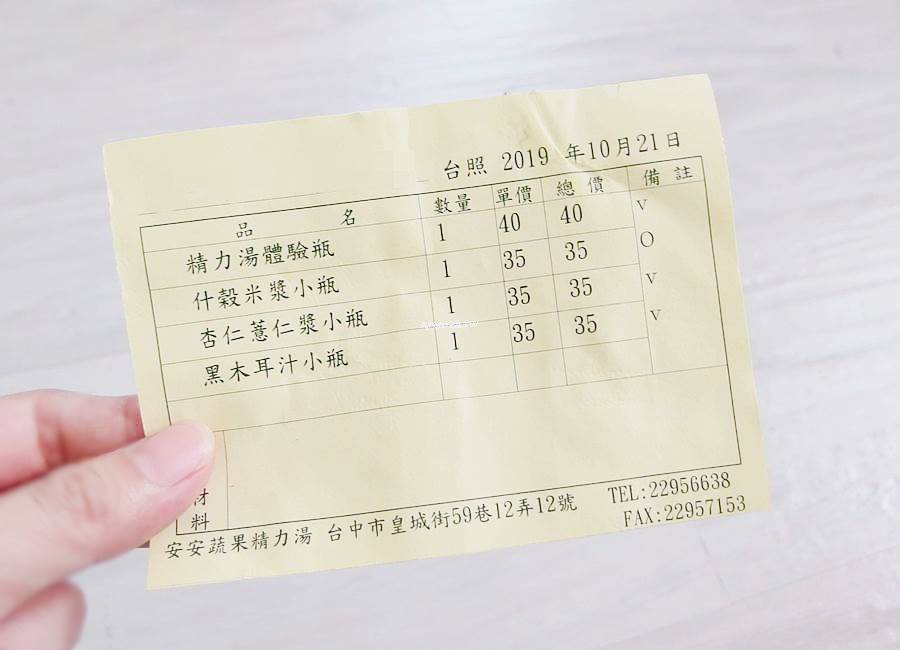 台照 2019 年10月21日
品 名 數量 單價 總價 備註
精力湯體驗瓶 1 40 40 v
什穀米漿小瓶 1 35 35 O
杏仁薏仁漿小瓶 1 35 35 v
黑木耳汁小瓶 1 35 35 v
材料
安安蔬果精力湯 台中市皇城街59巷12弄12號 TEL:22956638
FAX:22957153